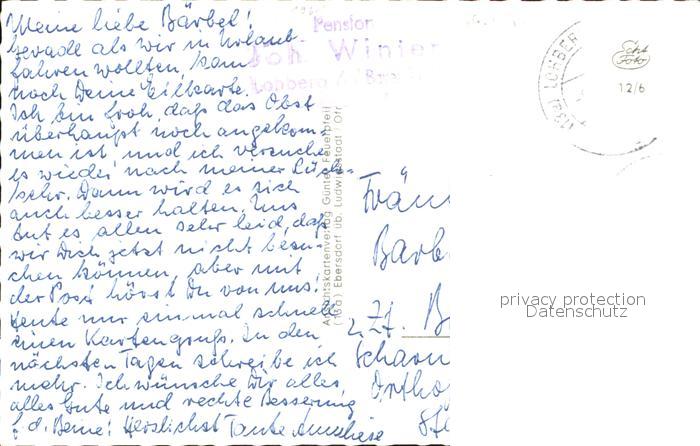 Meine liebe Bärbel!
Gerade als wir in Urlaub
fahren wollten, kam
noch Deine Eilkarte.
Ich bin froh, daß das Obst
überhaupt noch angekom-
men ist, und ich versuche
es wieder nach meiner Rück-
kehr. Dann wird es sich
auch besser halten. Uns
tut es allen sehr leid, daß
wir Dich jetzt nicht besu-
chen können, aber mit
der Post hörst Du von uns.
Heute nur einmal schnell
einen Kartengruß. In den
nächsten Tagen schreibe ich
mehr. Ich wünsche Dir alles,
alles Gute und rechte Besserung
f. d. Beine! Herzlichst Tante Anneliese
Pension
Joh. Winier
Lohberg
Ansichtskartenverlag Günter Feuerpfeil
(16b) Ebersdorf üb. Ludwigsstadt/Ofr
Fräu
Bärb
z. Zt. B
Scharn
Ortho
LOHBER
Echt
Foto
12/6
privacy protection
Datenschutz